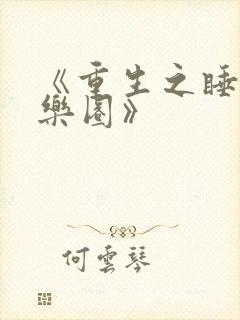 《重生之睡
樂園》
何雲琴